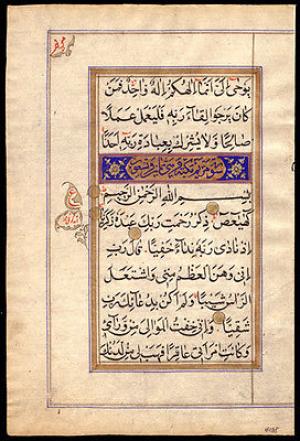 يوحى الى انما الهكم اله واحد فمن
كان يرجوا لقاء ربه فليعمل عملا
صالحا ولا يشرك بعبادة ربه احدا
سورة مريم
بسم الله الرحمن الرحيم
كهيعص ذكر رحمت ربك عبده زكريا
اذ نادى ربه نداء خفيا قال رب
انى وهن العظم منى واشتعل
الراس شيبا ولم اكن بدعائك رب
شقيا وانى خفت الموالى من ورآى
وكانت امراتى عاقرا فهب لى من لدنك